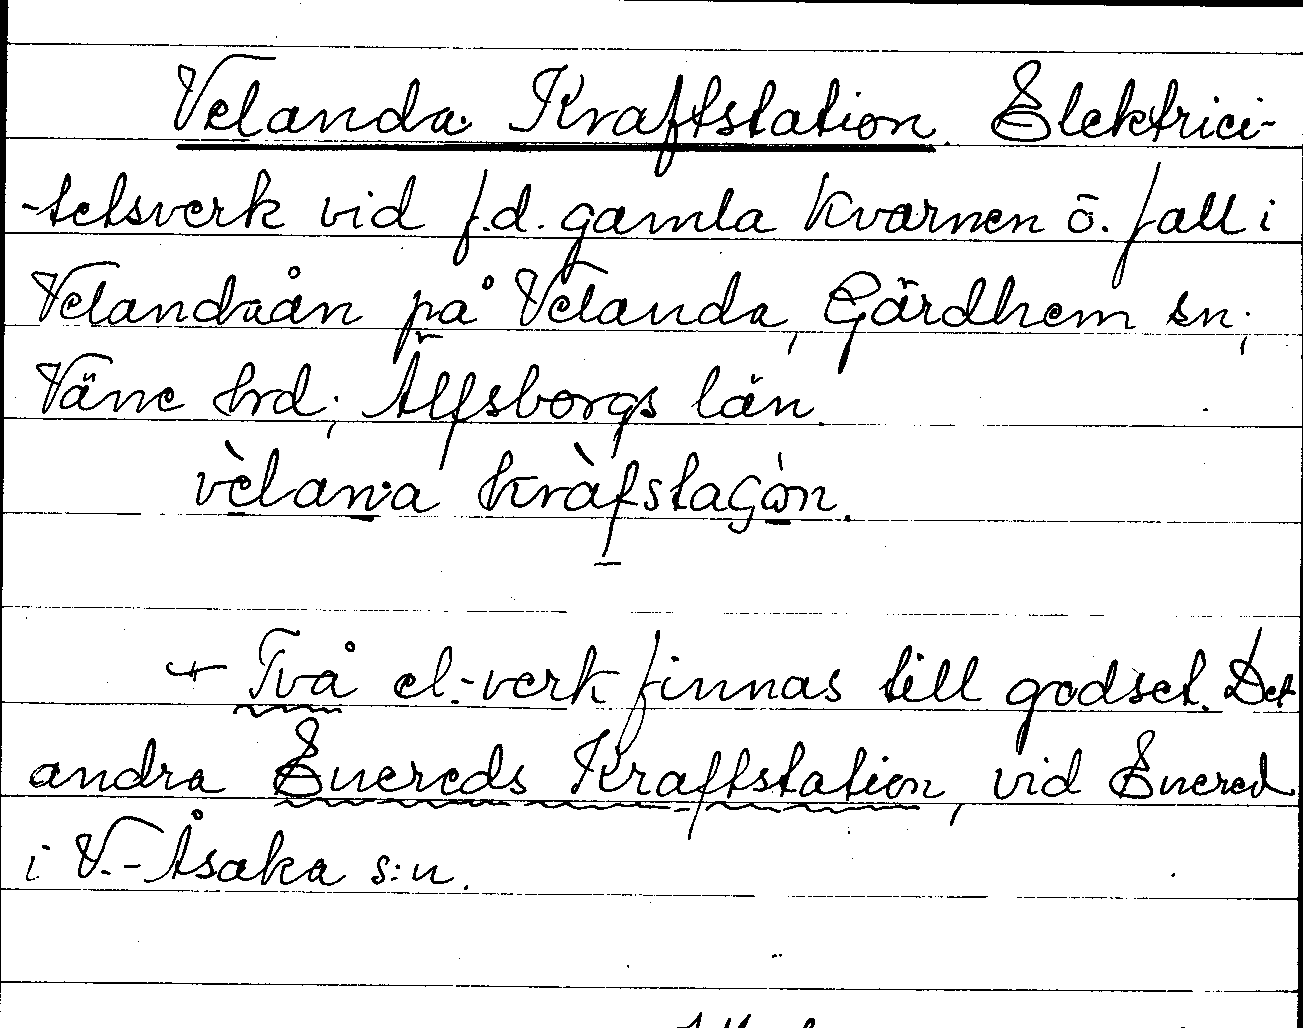 Velanda Kraftstation. Elektrici-
-tetsverk vid f.d. gamla Kvarnen ö. fall i
Velandaån på Velanda, Gärdhem sn;
Väne hrd; Älfsborgs län.
vèlana kràfstaGòn.
+ Två el.-verk finnas till godset. Det
andra Enereds Kraftstation, vid Enered
i V.-Åsaka s:n.